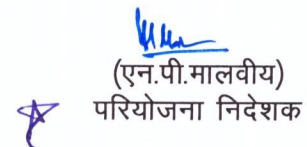 (एन.पी.मालवीय)
परियोजना निदेशक